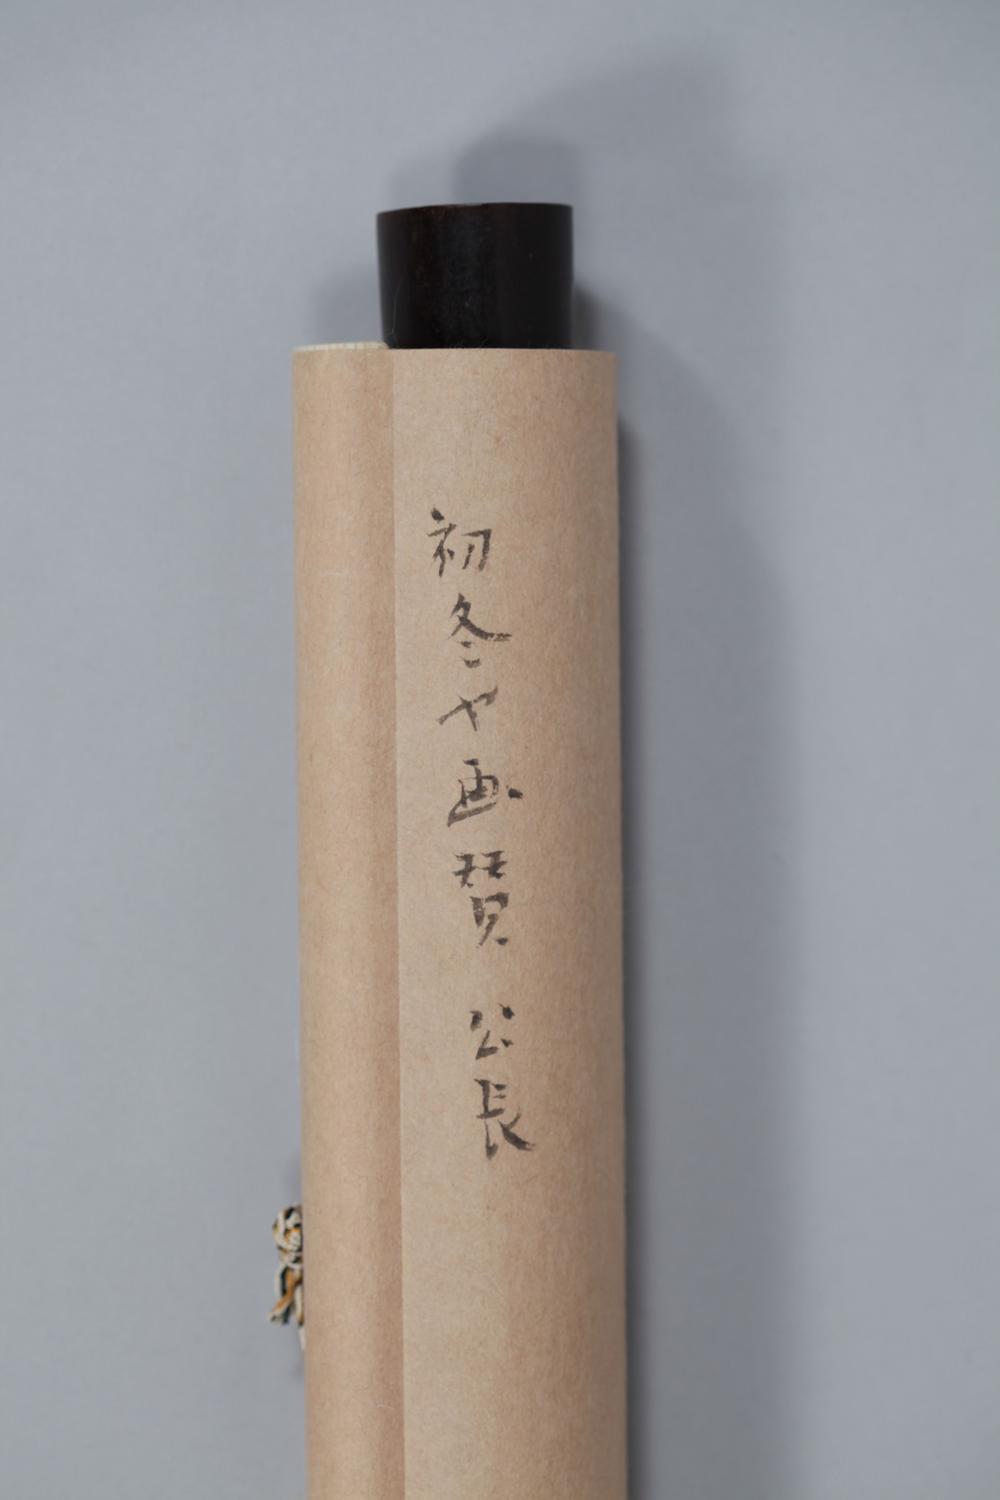 初冬や画賛 公長